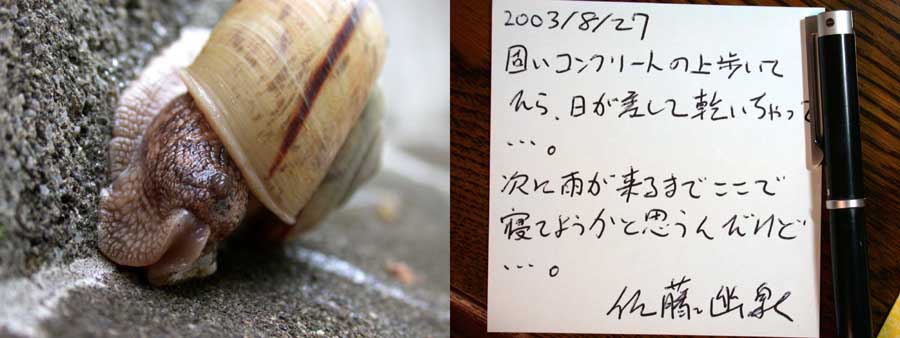 2003/8/27
固いコンクリートの上歩いて
たら、日が差して乾いちゃって
…。
次に雨が来るまでここで
寝てようかと思うんだけど
…。
佐藤